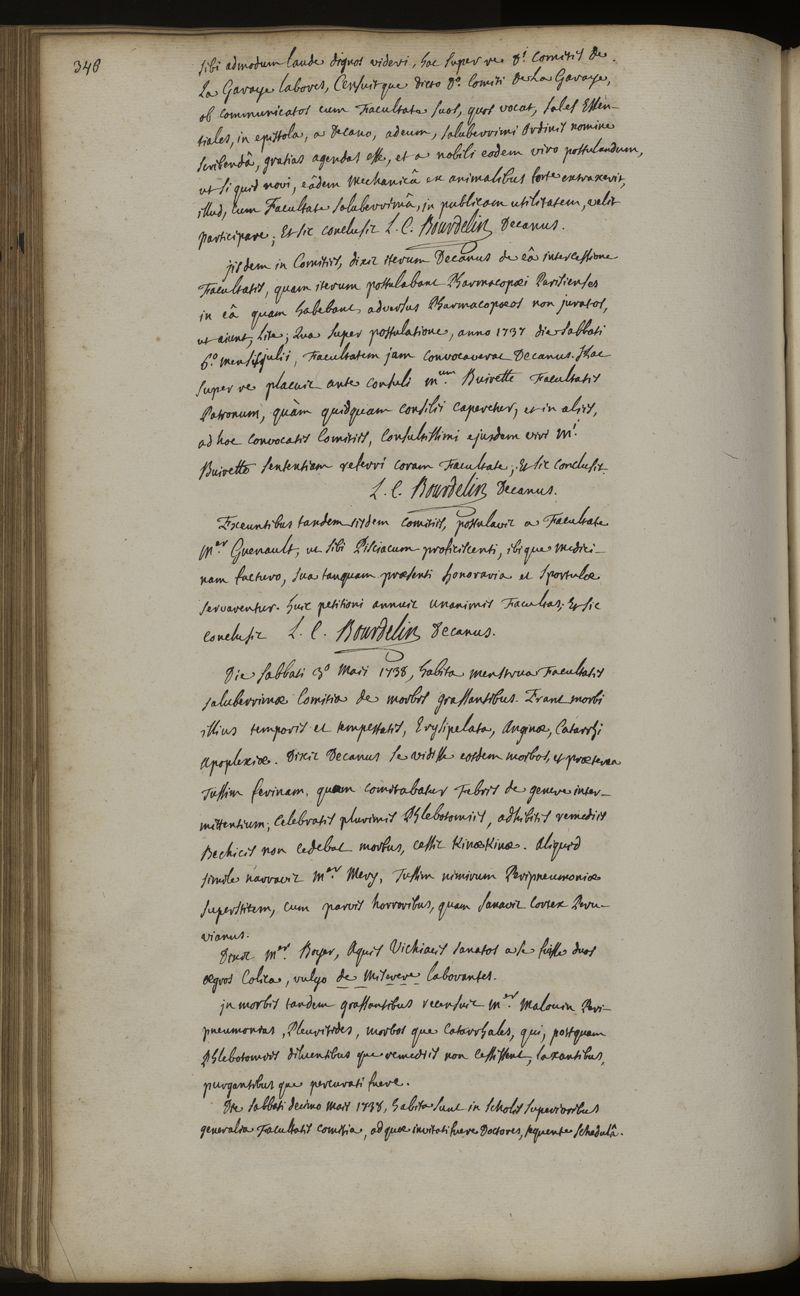 346
sibi admodum laude dignos videri, hac super re D.i Comitis De
La Garaye labores, Censuitque dicto D.o Comiti De La Garaye,
ob communicatos cum Facultate suos, quos vocat, sales Essen-
tiales, in epistola, a Decano, adeum, saluberrimi Ordinis nomine
scribendâ, gratias agendas esse, et a nobili eodem viro postulandum,
ut si quid novi, eâdem Mechanicâ ex animalibus forte extraxerit,
illud, cum Facultate saluberrimâ, in publicam utilitatem, velit
participare; Et sic conclusit L. C. Bourdelin Decanus.
jisdem in Comitiis, dixit iterum Decanus de eâ intercessione
Facultatis, quam iterum postulabant Pharmacopoei Parisienses
in eâ quam habebant adversus Pharmacopoeos non juratos,
ut aiunt, lite; Qua super postulatione, anno 1737 die sabbati
6.o mensis julii, Facultatem jam convocaverat Decanus. Hac
super re placuit ante consuli m.um Buirette Facultatis
Patronum, quàm quidquam consilii caperetur, et in aliis,
ad hoc convocatis Comitiis, consultissimi ejusdem viri M.i
Buirette sententiam referri coram Facultate; Et sic conclusit
L. C. Bourdelin Decanus.
Exeuntibus tandem iisdem comitiis, postulavit a Facultate
M.er Guenault, ut sibi Pisciacum proficiscenti, ibique medici-
nam facturo, sua tanquam praesenti honoraria et sportulae
servaventur. huic petitioni annuit unanimis Facultas. Et sic
conclusit L. C. Bourdelin Decanus.
Die sabbati 3.o Maii 1738, habita menstrua Facultatis
saluberrimae Comitia de morbis grassantibus. Erant morbi
illius temporis et tempestatis, Erysipelata, Anginae, Catarrhi
Apoplexiae. Dixit Decanus se vidisse eosdem morbos, et praeterea
Tussim ferinam, quam comitabatur Febris de genere inter-
mittentium; Celebratis plurimis Phlebotomiis, adhibitis remediis
Bechicis non cedebat morbus, cessit Kinaekinae. Aliquid
simile narravit M.er Mery, Tussim nimirum Peripneumoniae
superstitem, cum parvis horroribus, quam sanavit Cortex Peru-
vianus.
Dixit M.er Boyer, Aquis Vichiaeis sanatos a se fuisse duos
aegros Colica, vulgo de Miserere laborantes.
jn morbis tandem grassantibus recensuit M.er Malouin Peri-
pneumonias, Pleuritides, morbos que Catarrhales, qui, postquam
Phlebotomiis diluentibus que remediis non cessissent, laxantibus,
purgantibus que percurati fuere.
Die sabbati decimo Maii 1738, habita sunt in scholis superioribus
generalia Facultatis comitia, ad quae invitati fuere Doctores, sequente schedulâ.